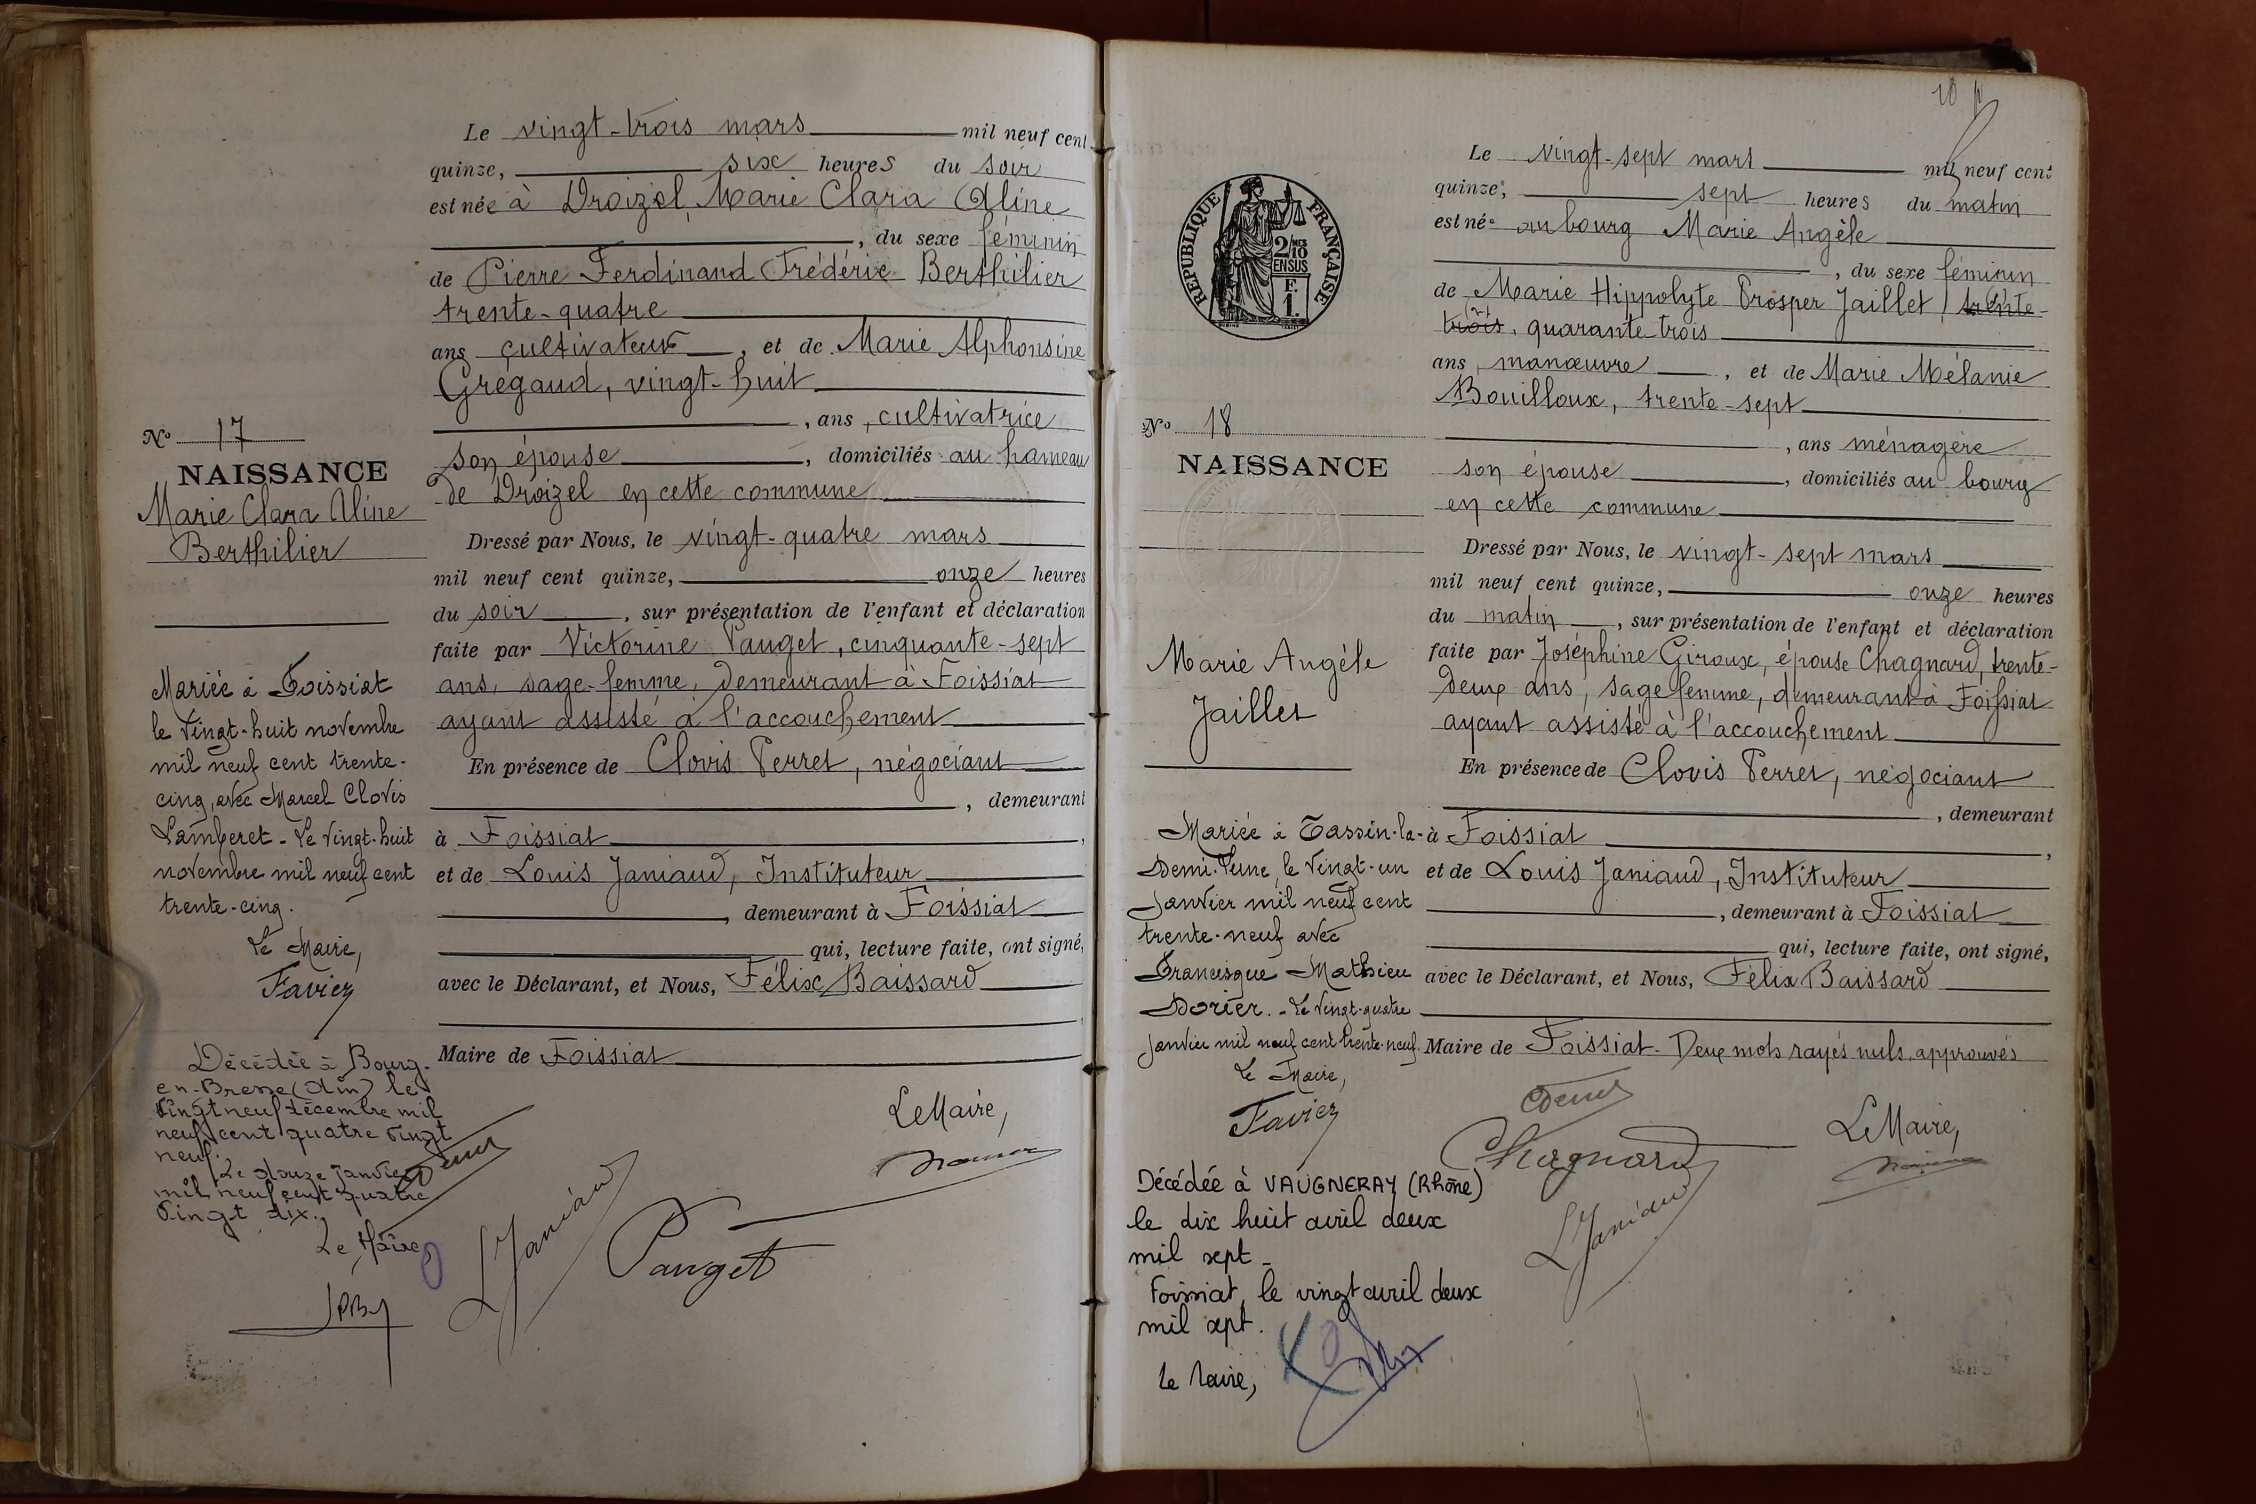 Le vingt-trois mars mil neuf cent
quinze, six heures du soir
est née à Droizel, Marie Clara Aline
, du sexe féminin
de Pierre Ferdinand Frédéric Berthilier
trente-quatre
ans cultivateur, et de Marie Alphonsine
Grégaud, vingt-huit
, ans, cultivatrice
son épouse, domiciliés au hameau
de Droizel en cette commune
Dressé par Nous, le vingt-quatre mars
mil neuf cent quinze, onze heures
du soir, sur présentation de l'enfant et déclaration
faite par Victorine Pauget, cinquante-sept
ans, sage-femme, demeurant à Foissiat
ayant assisté à l'accouchement
En présence de Clovis Perret, négociant
, demeurant
à Foissiat,
et de Louis Janiaud, Instituteur
, demeurant à Foissiat
qui, lecture faite, ont signé,
avec le Déclarant, et Nous, Félix Baissard
Maire de Foissiat
Le Maire,
L Janiaud
Pauget
No 17
NAISSANCE
Marie Clara Aline
Berthilier
Mariée à Foissiat
le vingt-huit novembre
mil neuf cent trente-
cinq, avec Marcel Clovis
Lamberet - Le vingt-huit
novembre mil neuf cent
trente-cinq.
Le Maire,
Favier
Décédée à Bourg-
en-Bresse (Ain) le
vingt neuf décembre mil
neuf cent quatre vingt
neuf.
Le douze janvier
mil neuf cent quatre
vingt dix.
Le Maire,
10
RÉPUBLIQUE FRANÇAISE
2/10 MES
EN SUS
F.
1.
Le vingt-sept mars mil neuf cent
quinze, sept heures du matin
est née au bourg Marie Angèle
, du sexe féminin
de Marie Hippolyte Prosper Jaillet, trente-
trois, quarante-trois
ans, manœuvre, et de Marie Mélanie
Bouilloux, trente-sept
, ans ménagère
son épouse, domiciliés au bourg
en cette commune
Dressé par Nous, le vingt-sept mars
mil neuf cent quinze, onze heures
du matin, sur présentation de l'enfant et déclaration
faite par Joséphine Giroux, épouse Chagnard, trente-
deux ans, sage femme, demeurant à Foissiat
ayant assisté à l'accouchement
En présence de Clovis Perret, négociant
, demeurant
à Foissiat,
et de Louis Janiaud, Instituteur
, demeurant à Foissiat
qui, lecture faite, ont signé,
avec le Déclarant, et Nous, Félix Baissard
Maire de Foissiat. Deux mots rayés nuls, approuvés
Le Maire,
Chagnard
L Janiaud
No 18
NAISSANCE
Marie Angèle
Jaillet
Mariée à Tassin-la-
Demi-Lune, le vingt-un
Janvier mil neuf cent
trente-neuf avec
Francisque Mathieu
Dorier. - Le vingt-quatre
janvier mil neuf cent trente-neuf.
Le Maire,
Favier
Décédée à VAUGNERAY (Rhône)
le dix huit avril deux
mil sept -
Foissiat, le vingt avril deux
mil sept.
Le Maire,